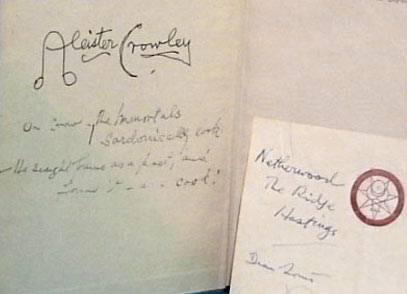 Aleister Crowley
On Crow the Immortals
Sardonically look
He sought Fame as a poet, and
Found it as a cook!
Netherwood
The Ridge
Hastings
Dear Louis